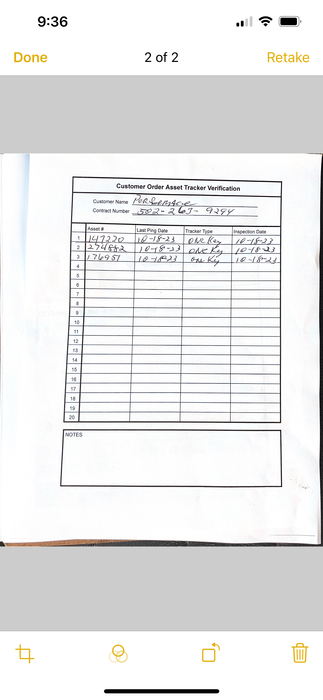 9:36
Done
2 of 2
Retake
Customer Order Asset Tracker Verification
Customer Name
Contract Number 502-267-9294
Asset # Last Ping Date Tracker Type Inspection Date
1 147220 10-18-23 ONE Key 10-18-23
2 274882 10-18-23 ONE Key 10-18-23
3 176951 10-18-23 One Key 10-18-23
4
5
6
7
8
9
10
11
12
13
14
15
16
17
18
19
20
NOTES